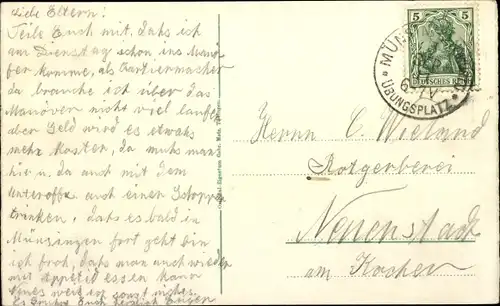 Liebe Eltern!
Teile Euch mit, dahs ich
am Dienstag schon ins Manö
ber komme, als Cartiermacher
da brauche ich über das
Manöver nicht viel laufe
aber Geld wird es etwahs
mehr kosten, da muhs man
hie u. da auch mit dem
Unteroffz auch einen Schoppen
trinken, dahs es bald in
Münsingen fort geht bin
ich froh, dahs man auch wieder
mit Appetid essen kann
neues weis ich sonst nichts.
Es Grüsst Euch herzlich Eugen
5 5
DEUTSCHES REICH
MÜN
ÜBUNGSPLATZ
Herrn C. Wieland
Rotgerberei
Neuenstadt
am Kocher